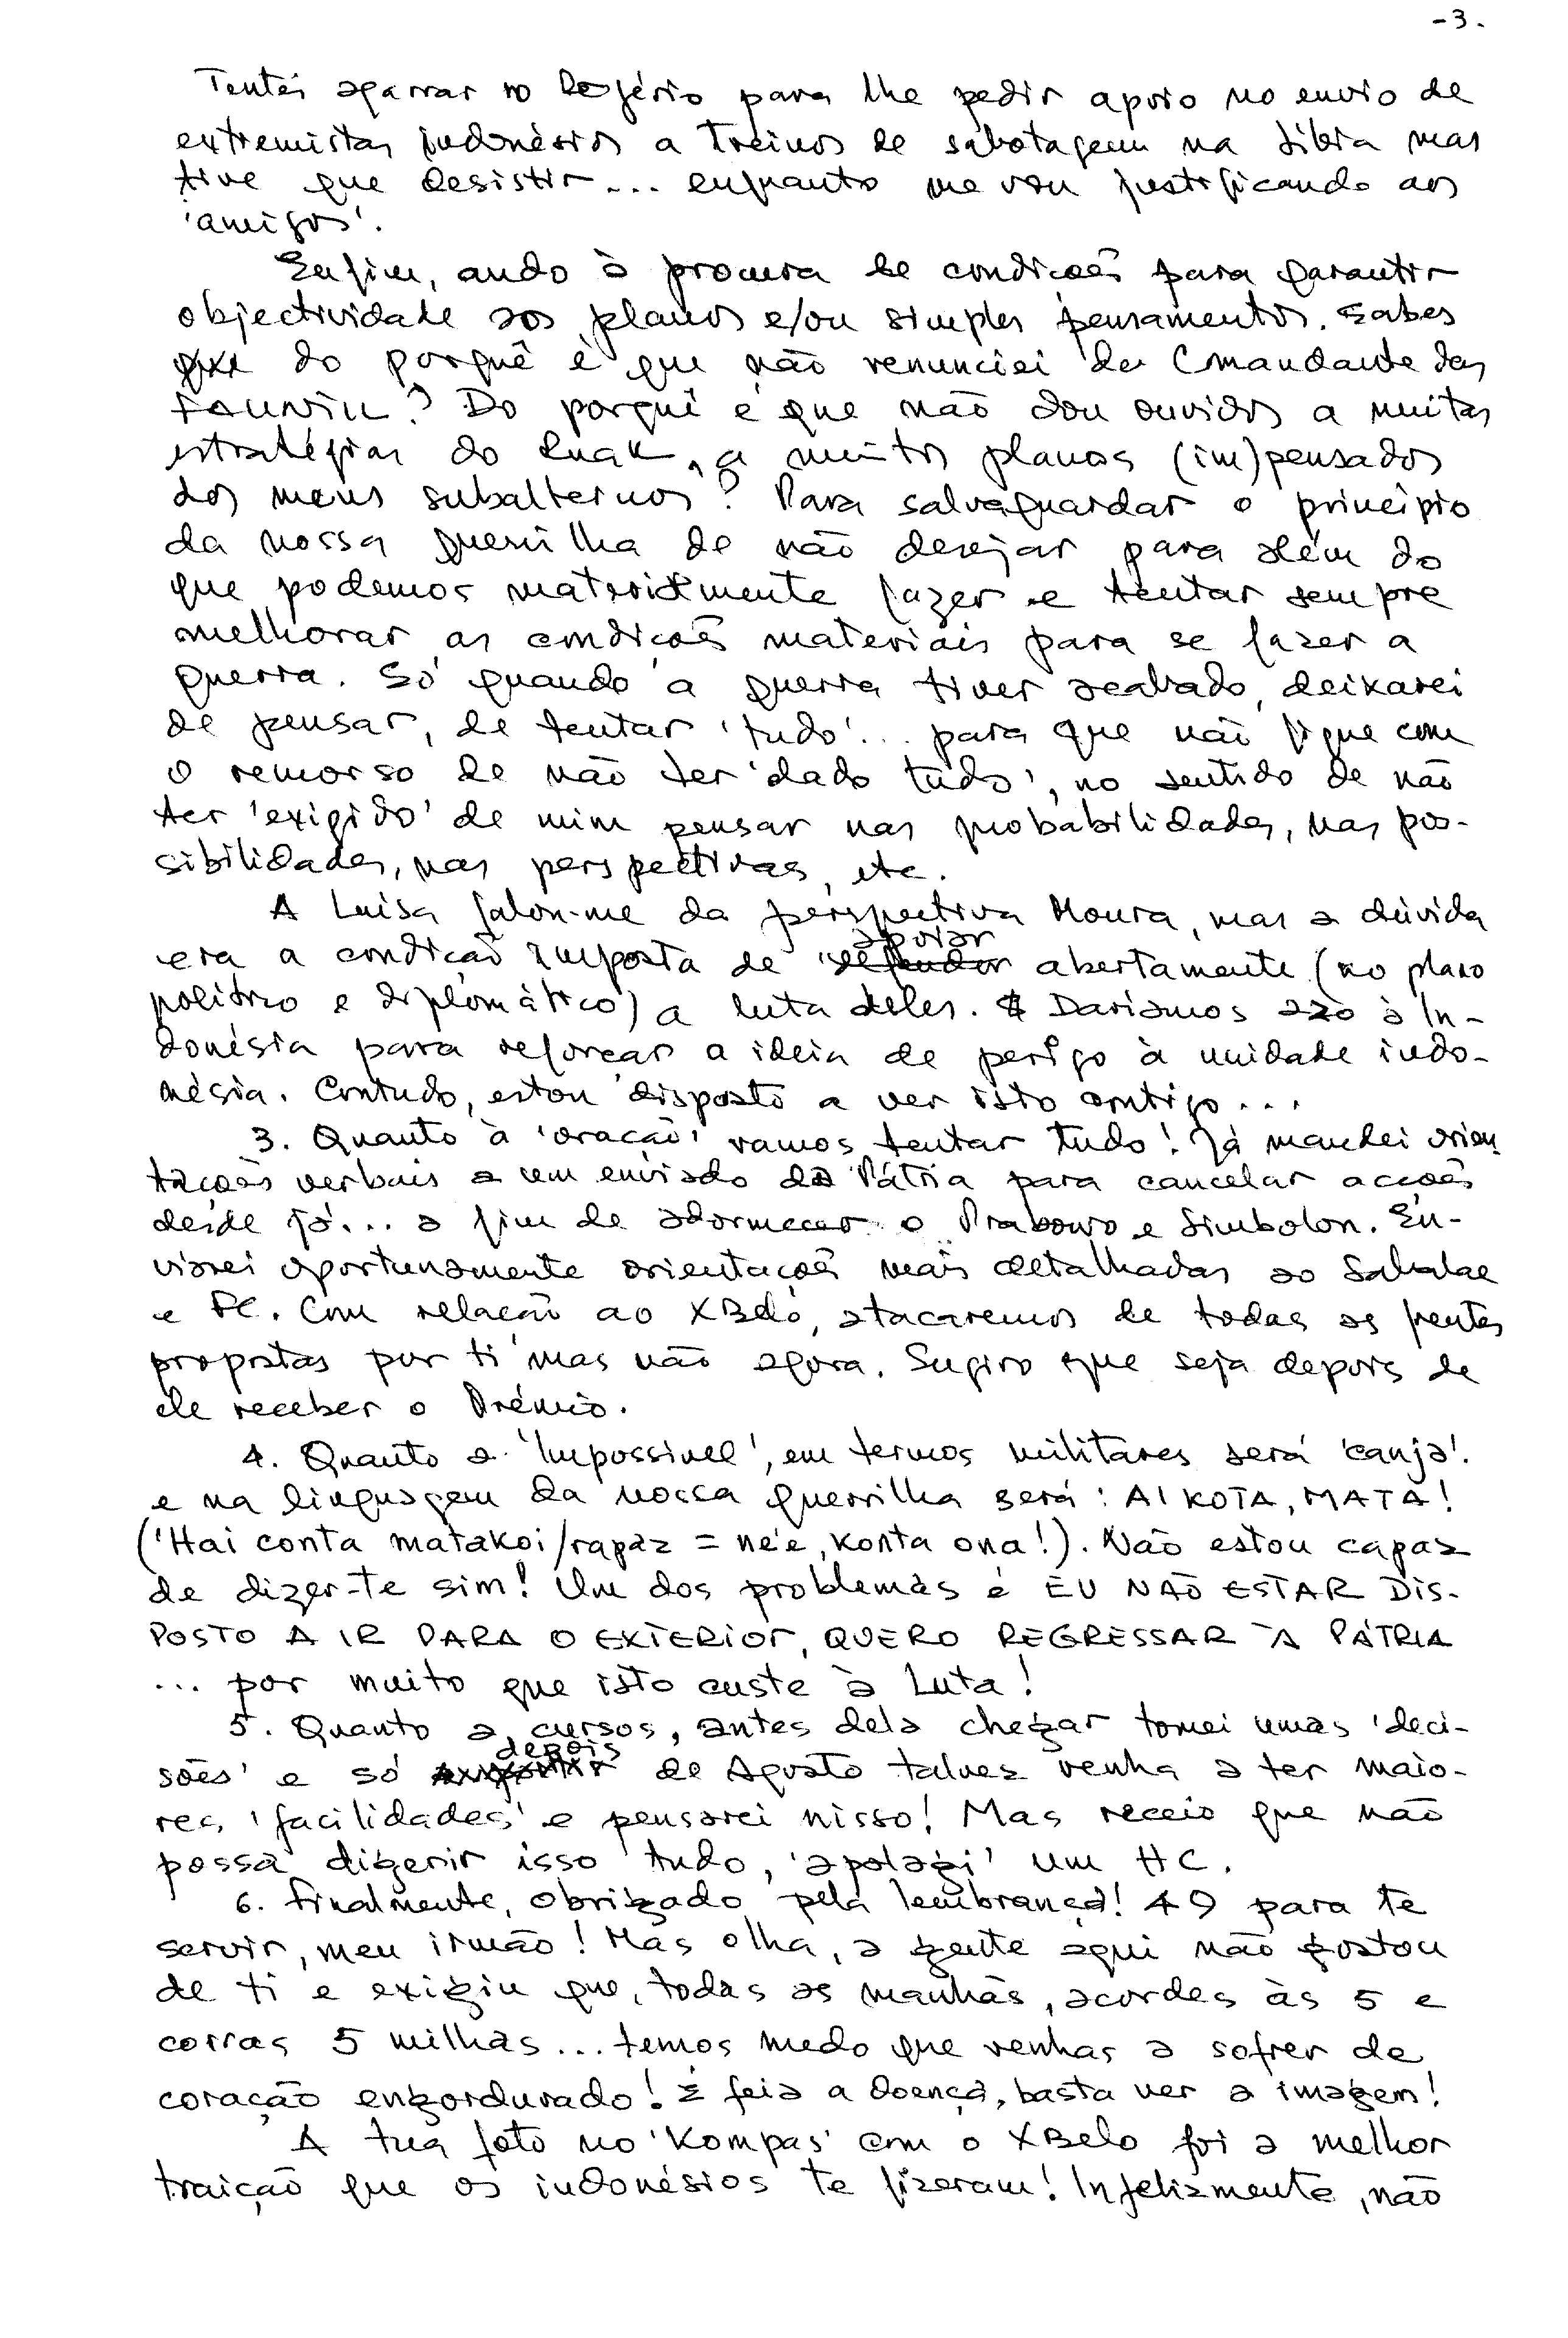 -3.
Tentei agarrar no Rogério para lhe pedir apoio no envio de
extremistas indonésios a treinos de sabotagem na Líbia mas
tive que desistir... enquanto me vou justificando aos
'amigos'.
Enfim, ando à procura de condições para garantir
objectividade aos planos e/ou simples pensamentos. Sabes
do porquê é que não renunciei de Comandante das
FALINTIL? Do porquê é que não dou ouvidos a muitas
estratégias do Ruak, a muitos planos (im)pensados
dos meus subalternos? Para salvaguardar o princípio
da nossa guerrilha de não desejar para além do
que podemos materialmente fazer e tentar sempre
melhorar as condições materiais para se fazer a
guerra. Só quando a guerra tiver acabado, deixarei
de pensar, de tentar 'tudo'... para que não fique com
o remorso de não ter 'dado tudo', no sentido de não
ter 'exigido' de mim pensar nas probabilidades, nas pos-
sibilidades, nas perspectivas, etc.
A Luísa falou-me da perspectiva Moura, mas a dúvida
era a condição imposta de apoiar abertamente (no plano
político e diplomático) a luta deles. Daríamos azo à In-
donésia para reforçar a ideia de perigo à unidade indo-
nésia. Contudo, estou disposto a ver isto contigo...
3. Quanto à 'oração' vamos tentar tudo! Já mandei orien
tações verbais a um enviado da Pátria para cancelar acções
desde já... a fim de adormecer o Prabowo e Simbolon. En-
viarei oportunamente orientações mais detalhadas ao Sabalae
e PC. Com relação ao XBelo, atacaremos de todas as frentes
propostas por ti mas não agora. Sugiro que seja depois de
ele receber o Prémio.
4. Quanto a 'Impossível', em termos militares será 'canja'.
e na linguagem da nossa guerrilha será: AI KOTA, MATA!
('Hai conta matakoi/rapaz = ne'e, konta ona!). Não estou capaz
de dizer-te sim! Um dos problemas é EU NÃO ESTAR DIS-
POSTO A IR PARA O EXTERIOR, QUERO REGRESSAR À PÁTRIA
... por muito que isto custe à Luta!
5. Quanto a cursos, antes dela chegar tomei umas 'deci-
sões' e só depois de Agosto talvez venha a ter maio-
res 'facilidades' e pensarei nisso! Mas receio que não
possa digerir isso tudo, 'apalagi' um HC.
6. Finalmente, obrigado pela lembrança! 49 para te
servir, meu irmão! Mas olha, a gente aqui não gostou
de ti e exigiu que, todas as manhãs, acordes às 5 e
corras 5 milhas... temos medo que venhas a sofrer de
coração engordurado! É feia a doença, basta ver a imagem!
A tua foto no 'Kompas' com o XBelo foi a melhor
traição que os indonésios te fizeram! Infelizmente, não